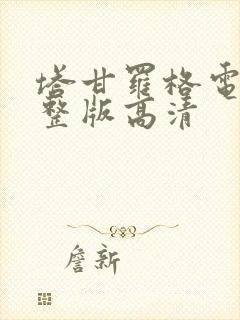 塔甘羅格電
整版高清
詹新